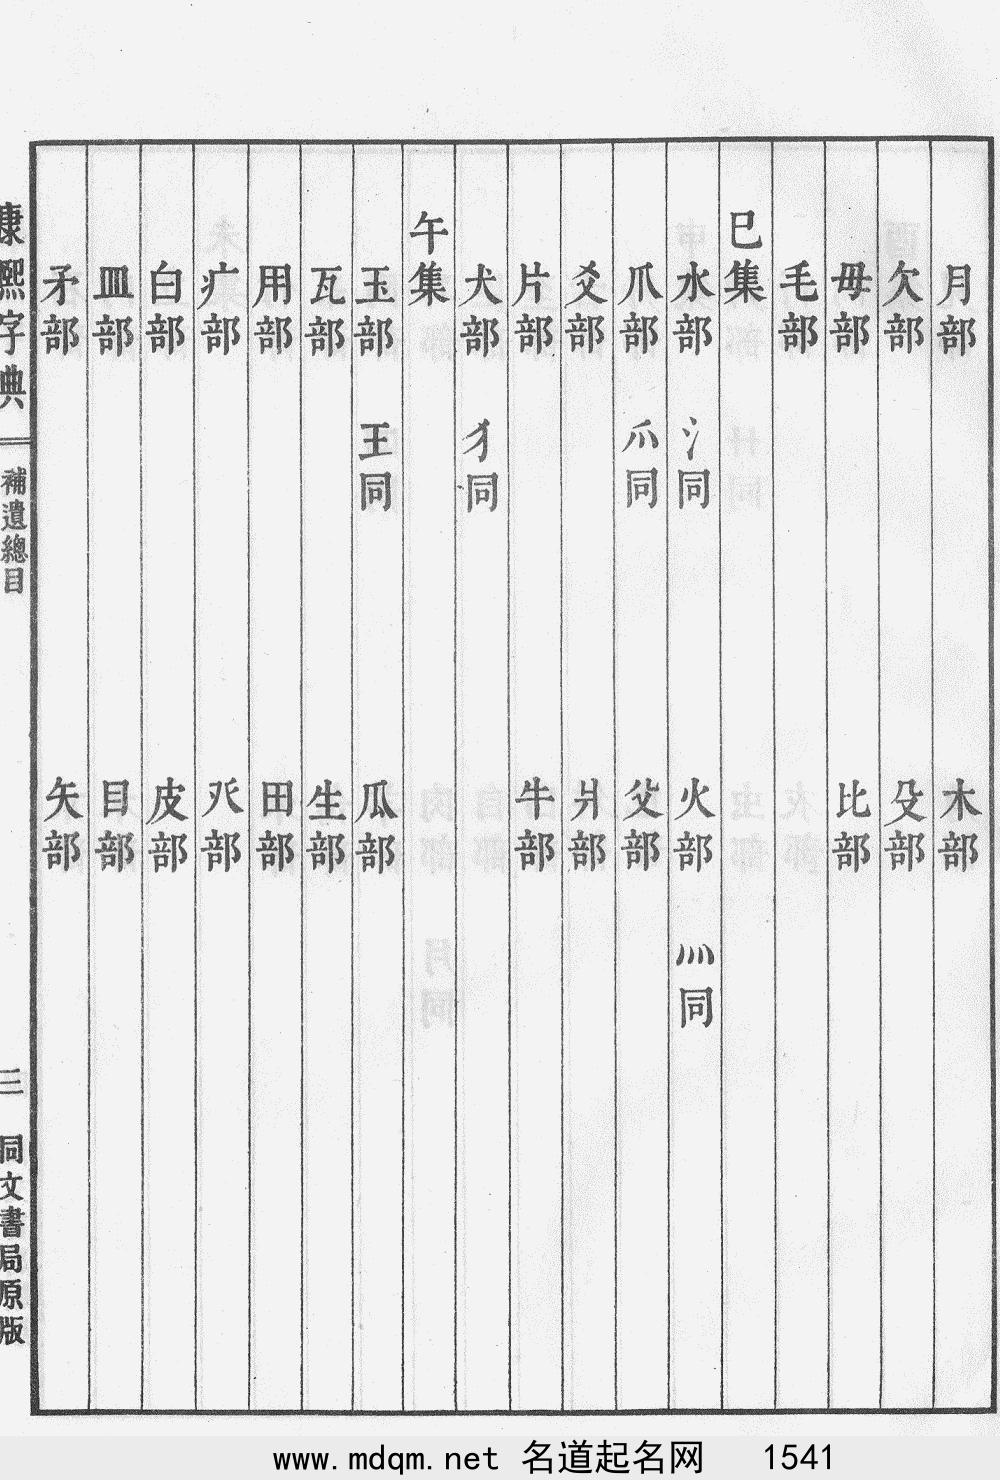 月部 木部
欠部 殳部
毋部 比部
毛部
巳集
水部 氵同 火部 灬同
爪部 爫同 父部
爻部 爿部
片部 牛部
犬部 犭同
午集
玉部 王同 瓜部
瓦部 生部
用部 田部
疒部 癶部
白部 皮部
皿部 目部
矛部 矢部
康熙字典 補遺總目 三 同文書局原版
www.mdqm.net 名道起名网 1541